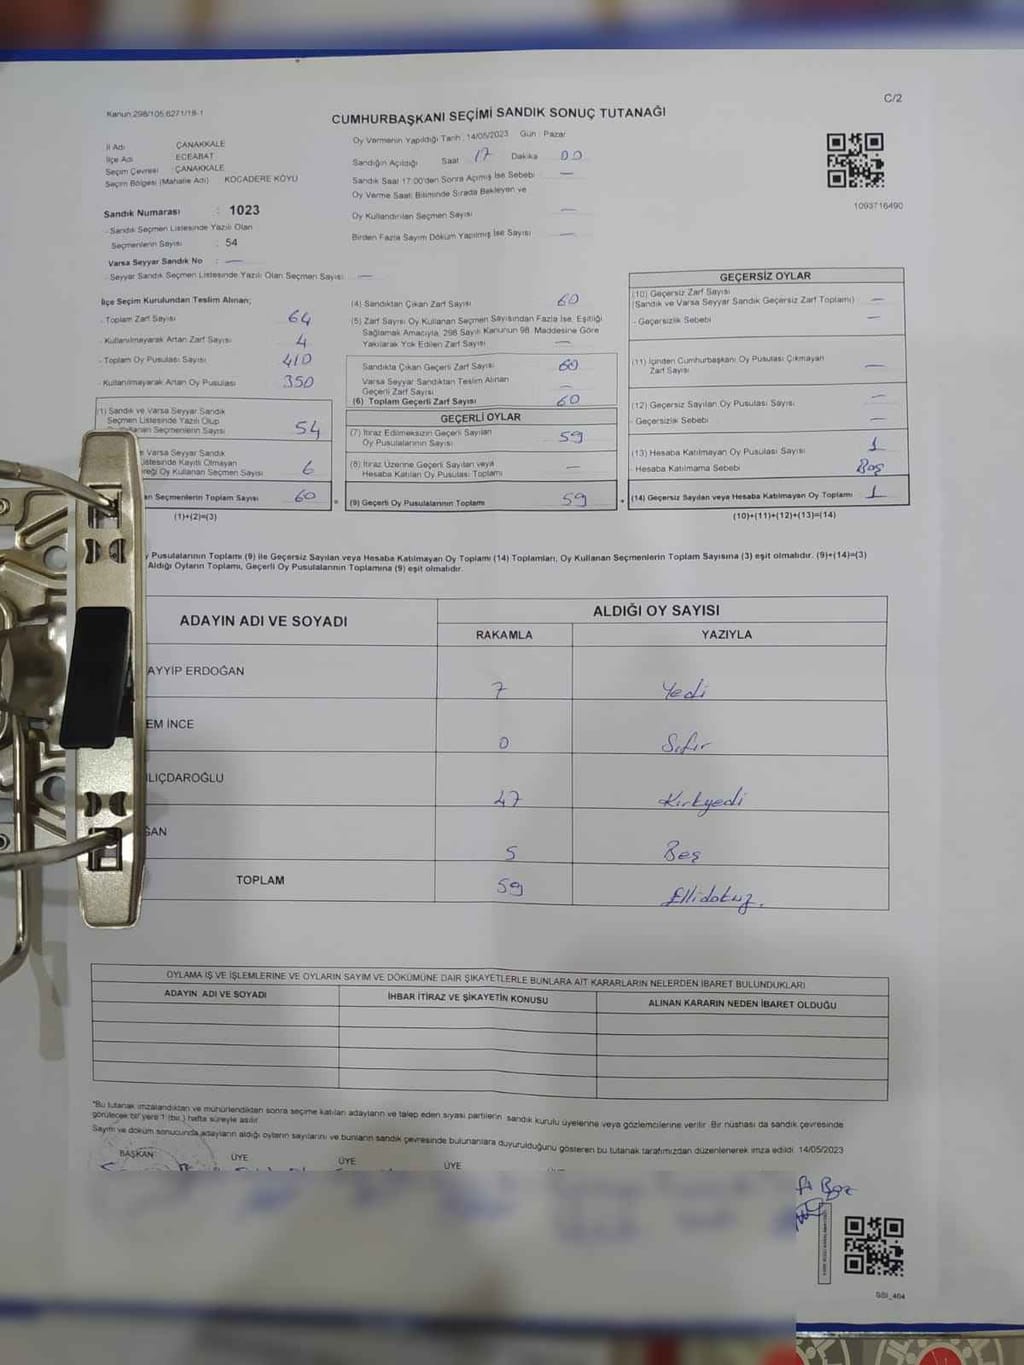 Kanun:298/105,6271/18-1
C/2
CUMHURBAŞKANI SEÇİMİ SANDIK SONUÇ TUTANAĞI
İl Adı ÇANAKKALE
İlçe Adı ECEABAT
Seçim Çevresi : ÇANAKKALE
Seçim Bölgesi (Mahalle Adı) KOCADERE KÖYÜ
Oy Vermenin Yapıldığı Tarih : 14/05/2023 Gün : Pazar
Sandığın Açıldığı Saat 17 Dakika 00
Sandık Saat 17:00'den Sonra Açılmış İse Sebebi —
Oy Verme Saati Bitiminde Sırada Bekleyen ve
Oy Kullandırılan Seçmen Sayısı —
Birden Fazla Sayım Döküm Yapılmış İse Sayısı —
1093716490
Sandık Numarası : 1023
- Sandık Seçmen Listesinde Yazılı Olan
Seçmenlerin Sayısı : 54
Varsa Seyyar Sandık No : —
- Seyyar Sandık Seçmen Listesinde Yazılı Olan Seçmen Sayısı: —
İlçe Seçim Kurulundan Teslim Alınan;
- Toplam Zarf Sayısı 64
- Kullanılmayarak Artan Zarf Sayısı 4
- Toplam Oy Pusulası Sayısı 410
- Kullanılmayarak Artan Oy Pusulası 350
(1) Sandık ve Varsa Seyyar Sandık
Seçmen Listesinde Yazılı Olup
Seçmenlerin Sayısı 54
Varsa Seyyar Sandık
Listesinde Kayıtlı Olmayan
Oy Kullanan Seçmen Sayısı 6
an Seçmenlerin Toplam Sayısı 60
(1)+(2)=(3)
(4) Sandıktan Çıkan Zarf Sayısı 60
(5) Zarf Sayısı Oy Kullanan Seçmen Sayısından Fazla İse, Eşitliği
Sağlamak Amacıyla, 298 Sayılı Kanunun 98. Maddesine Göre
Yakılarak Yok Edilen Zarf Sayısı —
Sandıkta Çıkan Geçerli Zarf Sayısı 60
Varsa Seyyar Sandıktan Teslim Alınan
Geçerli Zarf Sayısı —
(6) Toplam Geçerli Zarf Sayısı 60
GEÇERLİ OYLAR
(7) İtiraz Edilmeksizin Geçerli Sayılan
Oy Pusulalarının Sayısı 59
(8) İtiraz Üzerine Geçerli Sayılan veya
Hesaba Katılan Oy Pusulası Toplamı —
(9) Geçerli Oy Pusulalarının Toplamı 59
GEÇERSİZ OYLAR
(10) Geçersiz Zarf Sayısı
(Sandık ve Varsa Seyyar Sandık Geçersiz Zarf Toplamı) —
- Geçersizlik Sebebi —
(11) İçinden Cumhurbaşkanı Oy Pusulası Çıkmayan
Zarf Sayısı —
(12) Geçersiz Sayılan Oy Pusulası Sayısı —
- Geçersizlik Sebebi —
(13) Hesaba Katılmayan Oy Pusulası Sayısı 1
- Hesaba Katılmama Sebebi Boş
(14) Geçersiz Sayılan veya Hesaba Katılmayan Oy Toplamı 1
(10)+(11)+(12)+(13)=(14)
y Pusulalarının Toplamı (9) ile Geçersiz Sayılan veya Hesaba Katılmayan Oy Toplamı (14) Toplamları, Oy Kullanan Seçmenlerin Toplam Sayısına (3) eşit olmalıdır. (9)+(14)=(3)
Aldığı Oyların Toplamı, Geçerli Oy Pusulalarının Toplamına (9) eşit olmalıdır.
ADAYIN ADI VE SOYADI ALDIĞI OY SAYISI
RAKAMLA YAZIYLA
AYYİP ERDOĞAN 7 Yedi
EM İNCE 0 Sıfır
LIÇDAROĞLU 47 Kırkyedi
ĞAN 5 Beş
TOPLAM 59 Ellidokuz.
OYLAMA İŞ VE İŞLEMLERİNE VE OYLARIN SAYIM VE DÖKÜMÜNE DAİR ŞİKAYETLERLE BUNLARA AİT KARARLARIN NELERDEN İBARET BULUNDUKLARI
ADAYIN ADI VE SOYADI İHBAR İTİRAZ VE ŞİKAYETİN KONUSU ALINAN KARARIN NEDEN İBARET OLDUĞU
*Bu tutanak imzalandıktan ve mühürlendikten sonra seçime katılan adayların ve talep eden siyasi partilerin sandık kurulu üyelerine veya gözlemcilerine verilir. Bir nüshası da sandık çevresinde
görülecek bir yere 1 (bir) hafta süreyle asılır.
Sayım ve döküm sonucunda adayların aldığı oyların sayılarını ve bunların sandık çevresinde bulunanlara duyurulduğunu gösteren bu tutanak tarafımızdan düzenlenerek imza edildi. 14/05/2023
BAŞKAN ÜYE ÜYE ÜYE
SBI_464